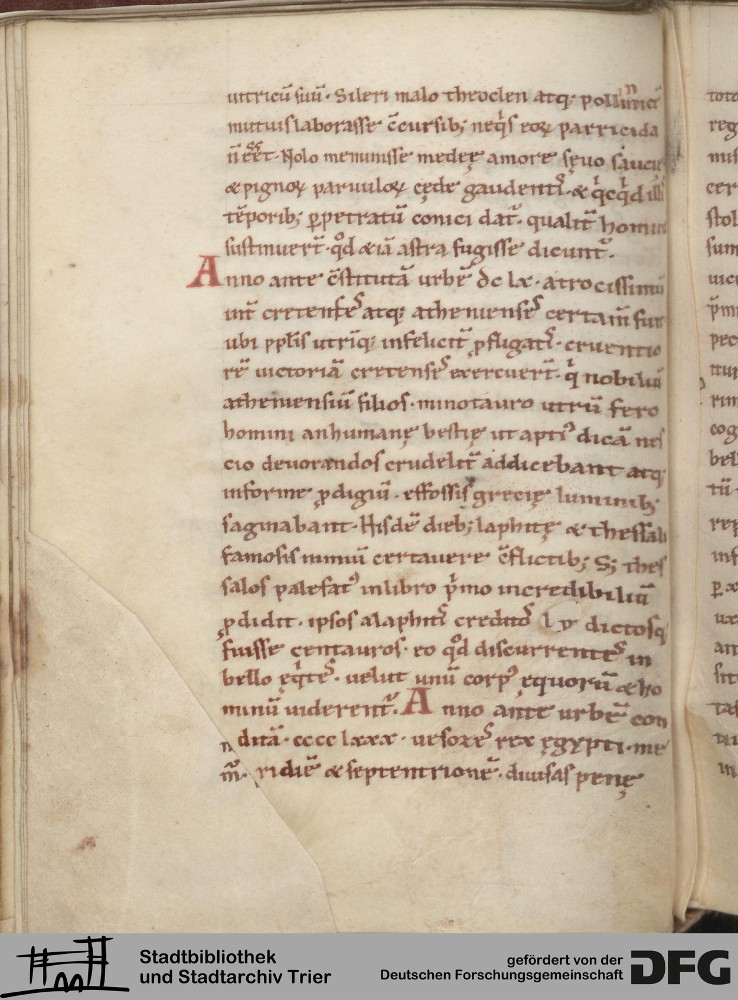 utricū suū. Sileri malo theoclen atq; pollinicē
mutuis laborasse c̄cursib; neq̄s eoꝝ parricida
n̄ eēt. Nolo meminisse medeę amore sęuo saucię
& pignoꝝ paruuloꝝ cęde gaudentis & q̇cq̇d illis
tēporib; ꝑpetratū conici dat᷑. qualit̄ homin
sustinuert̄. qđ & iā astra fugisse dicunt᷑.
Anno ante c̄stitutā urbē dc lx. atrocissimū
int̄ cretenses atq; athenienses certam̄ fuit
ubi ppl̄is utriq; infelicit̄ ꝓfligatis. cruentio
rē uictoriā cretenses exercuert̄. q̇ nobiliū
atheniensiū filios. minotauro utrū fero
homini an humanę bestię ut aptius dicā nes
cio deuorandos crudelit̄ addicebant atq;
informe ꝓdigiū. effossis gręcię luminib;
saginabant. Hisdē dieb; laphitę & thessali
famosis nimiū certauere c̄flictib; S; thes
salos palefatus in libro p̄mo incredibiliū
ꝓdidit. ipsos a laphitis creditos dictosq;
fuisse centauros. eo qđ discurrentes in
bello ęq̇tes. uelut unū corpus ęquorū & ho
minū uiderent᷑. Anno ante urbē con
ditā. cccc lxxx. uesozes rex ęgypti. me
ridiē & septentrionē. diuisas penę
Stadtbibliothek
und Stadtarchiv Trier
gefördert von der
Deutschen Forschungsgemeinschaft
DFG